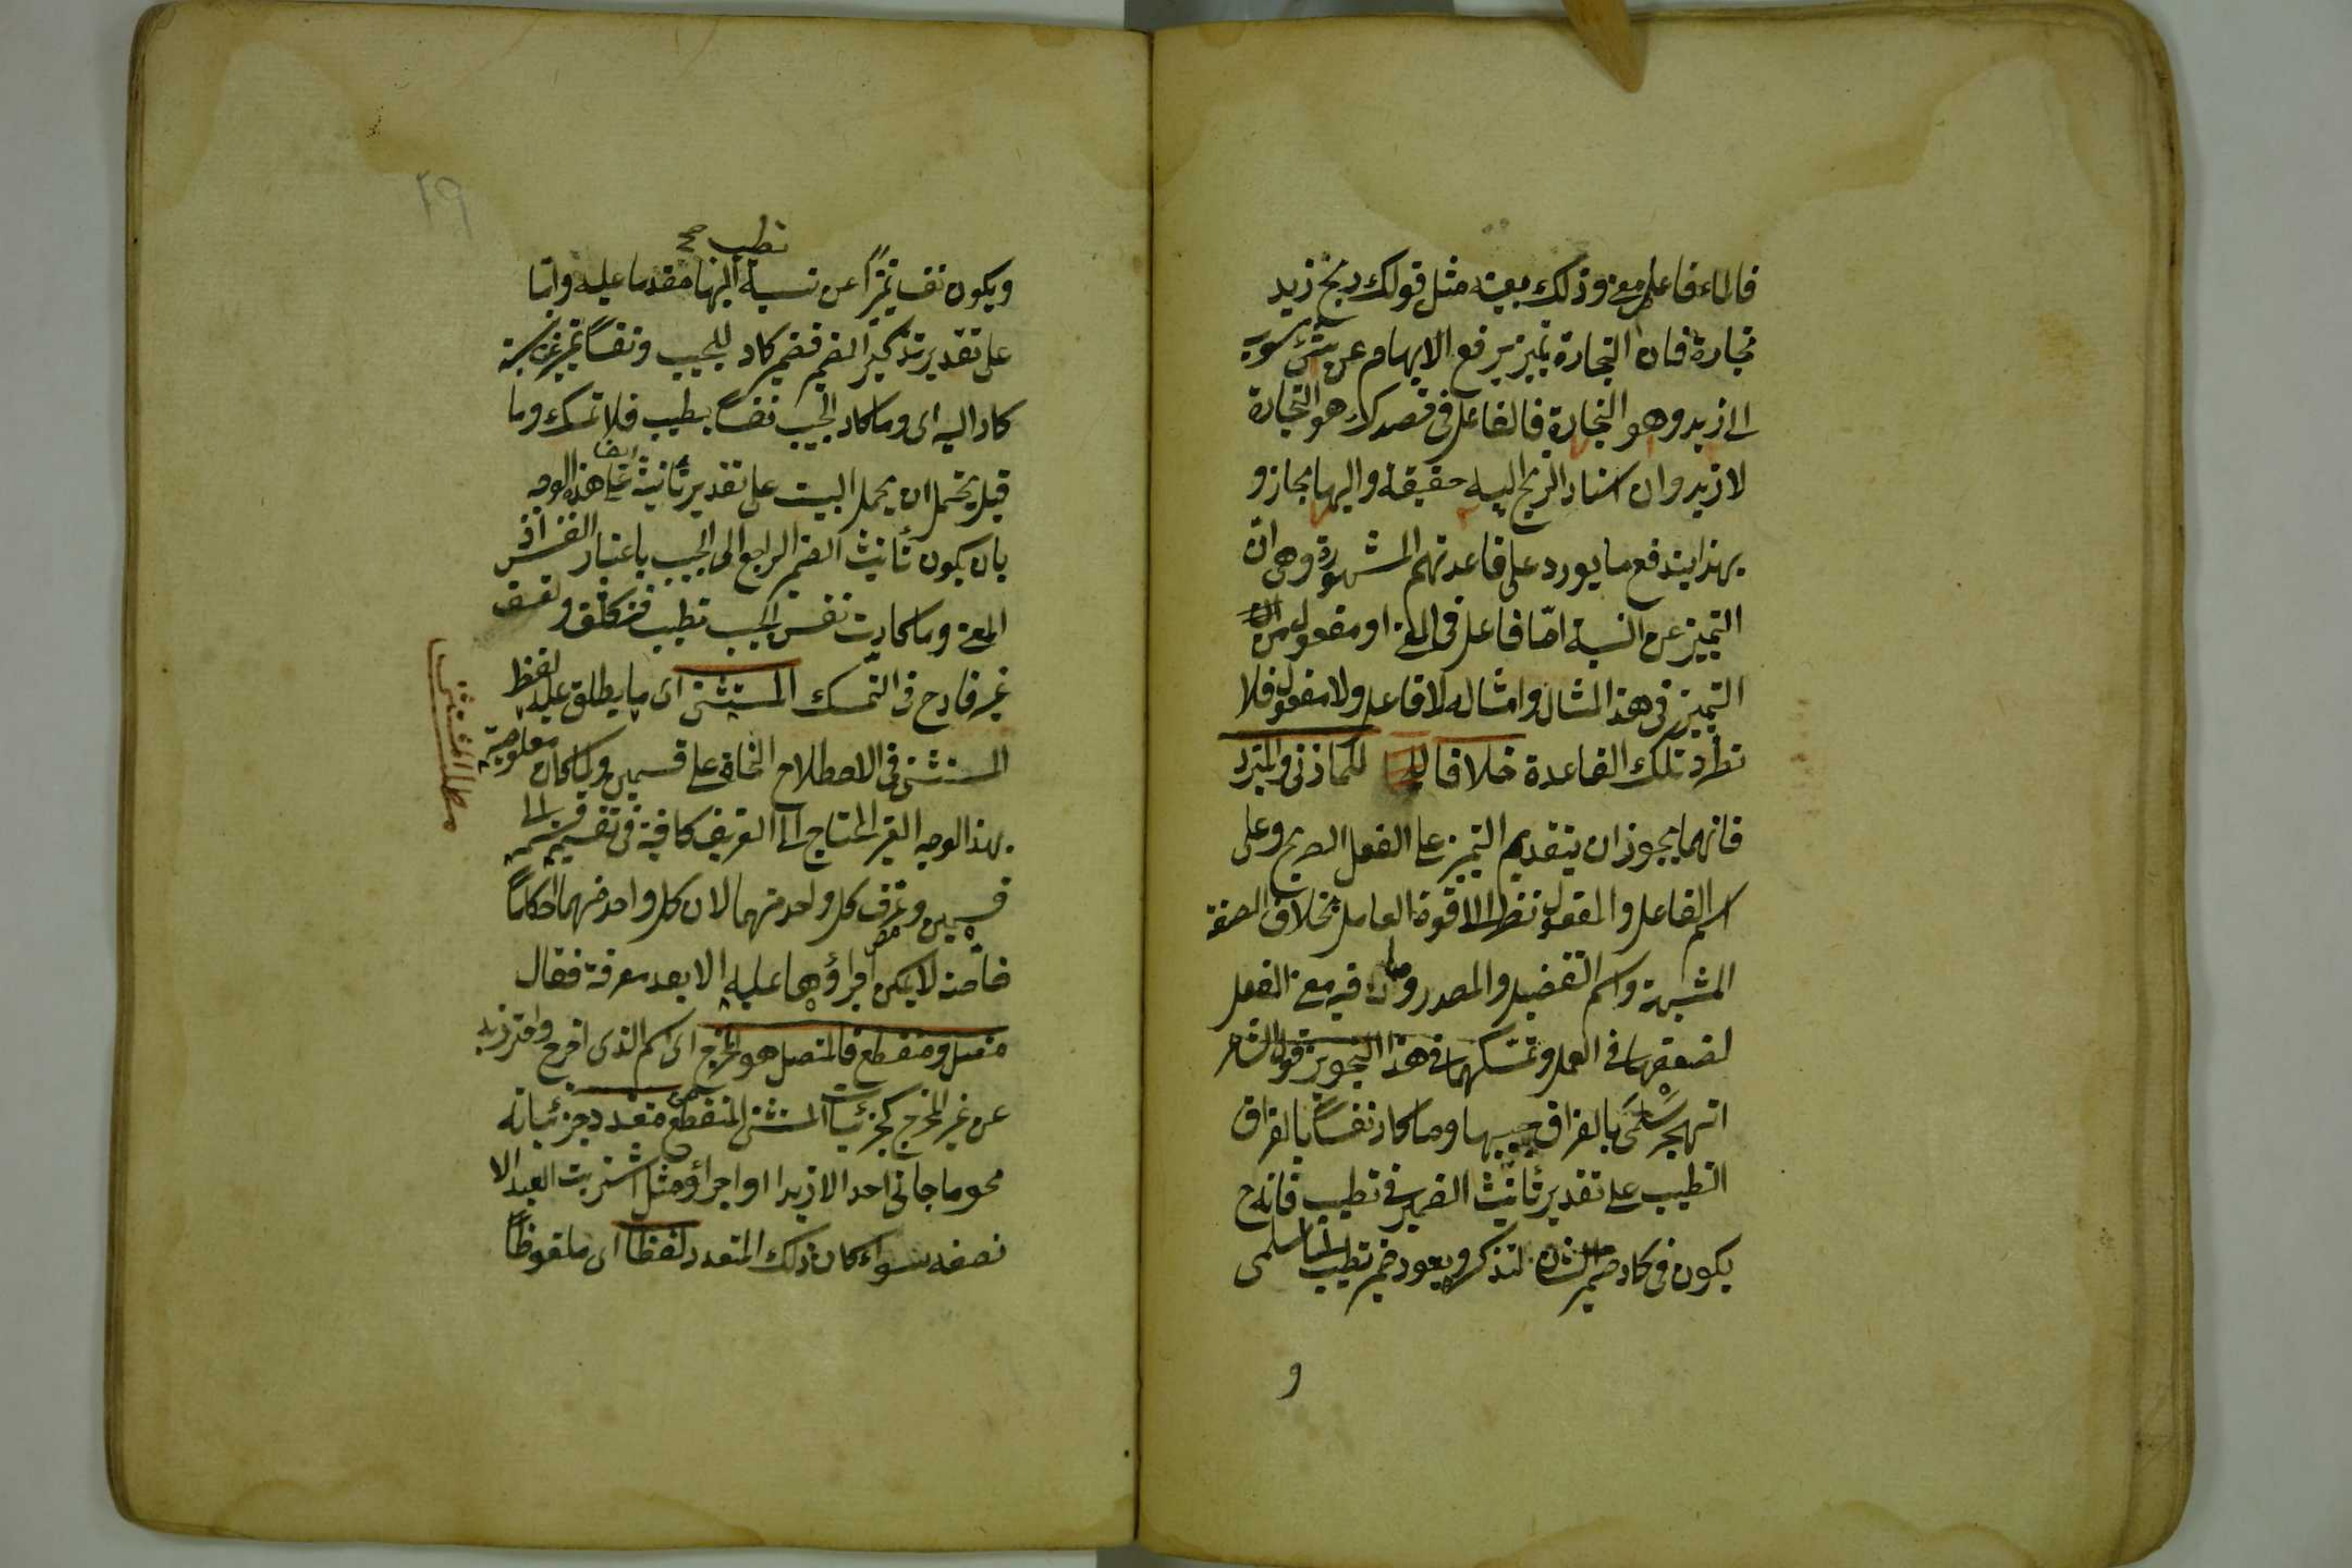 فالماء فاعل معنى وذلك بعينه مثل قولك ربح زيد
تجارة فان التجارة تميز يرفع الابهام عن شئ منسوب
الى زيد وهو التجارة فالفاعل فى قصدك هو التجارة
لا زيد وان اسناد الربح اليه حقيقة واليها مجاز و
بهذا يندفع ما يورد على قاعدتهم المشهورة وهى ان
التميز عن النسبة اما فاعل فى المعنى او مفعول من ان
التميز فى هذا المثال وامثاله لا فاعل ولا مفعول فلا
تطرد تلك القاعدة خلافا للمازنى والمبرد
فانهما يجوزان تقديم التميز على الفعل الصريح وعلى
اسم الفاعل والمفعول نظرا الى قوة العامل بخلاف الصفة
المشبهة واسم التفضيل والمصدر وما فيه معنى الفعل
لضعفها فى العمل وتمسكهما فى هذا التجويز قول الشاعر
اتهجر سلمى بالفراق حبيبها وما كاد نفسا بالفراق
تطيب على تقدير تأنيث الضمير فى تطيب فانه ح
يكون فى كاد ضمير الشان لتذكيره ويعود ضمير تطيب الى سلمى
و
تطيب صح
ويكون نفسا تميزا عن نسبة اليها مقدما عليه واما
على تقدير تذكير الضمير فضمير كاد للحبيب ونفسا تميز عن نسبة
كاد اليه اى وما كاد الحبيب نفسا يطيب فلا تمسك وما
قيل يحتمل ان يحمل البيت على تقدير تأنيثه ايضا على هذا الوجه
بان يكون تأنيث الضمير الراجع الى الحبيب باعتبار النفس اذ
المعنى وما كادت نفس الحبيب تطيب فتكلف وتعسف
غير قادح فى التمسك المستثنى اى ما يطلق عليه لفظ
المستثنى فى الاصطلاح النحاة على قسمين ولما كان معلوميته
بهذا الوجه الغير المحتاج الى التعريف كافية فى تقسيمه قسمه الى
قسمين وعرف كل واحد منهما لان كل واحد منهما احكاما
خاصة لا يمكن اجراؤها عليه الا بعد معرفة فقال
متصل ومنقطع فالمتصل هو المخرج اى اسم الذى اخرج واحترز به
عن غير المخرج كجزئيات المستثنى المنقطع عن متعدد جزئياته
نحو ما جاءنى احد الا زيدا او اجزاؤه مثل اشتريت العبد الا
نصفه سواء كان ذلك المتعدد لفظا اى ملفوظا
مطلب المستثنى
٢٩